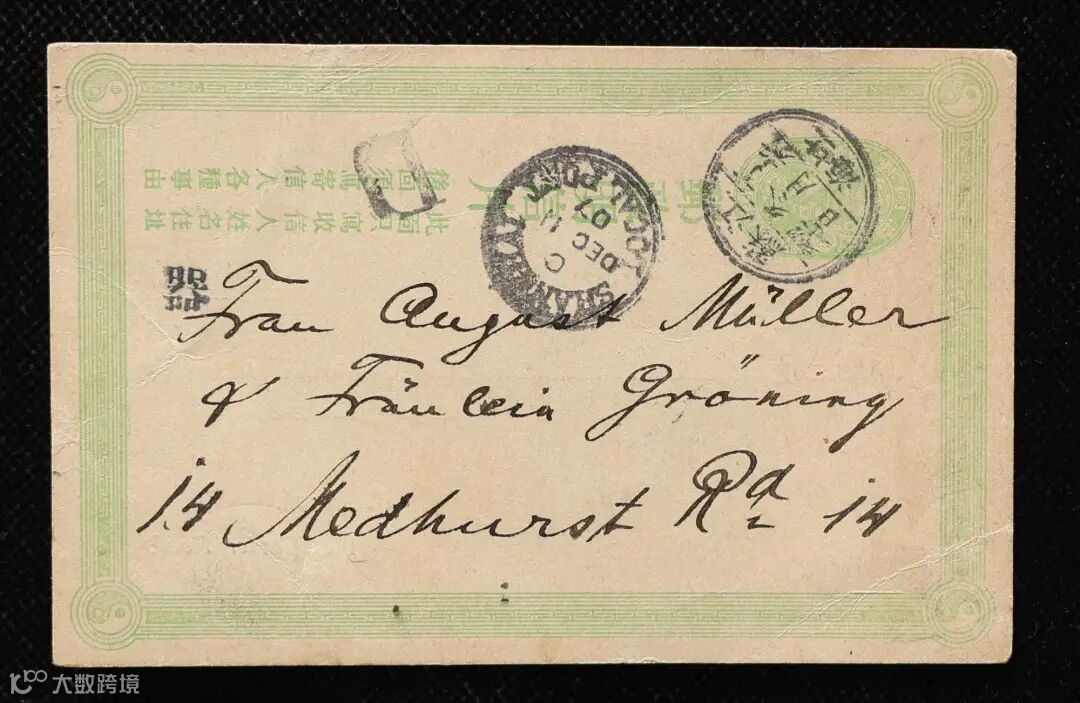 此面只寫收信人姓名住址
後面須寫寄信人各種事由
D
SHANGHAI LOCAL POST
C
DEC 11
07
Frau August Müller
& Fräulein Gröning
14 Medhurst Rd 14
大数跨境